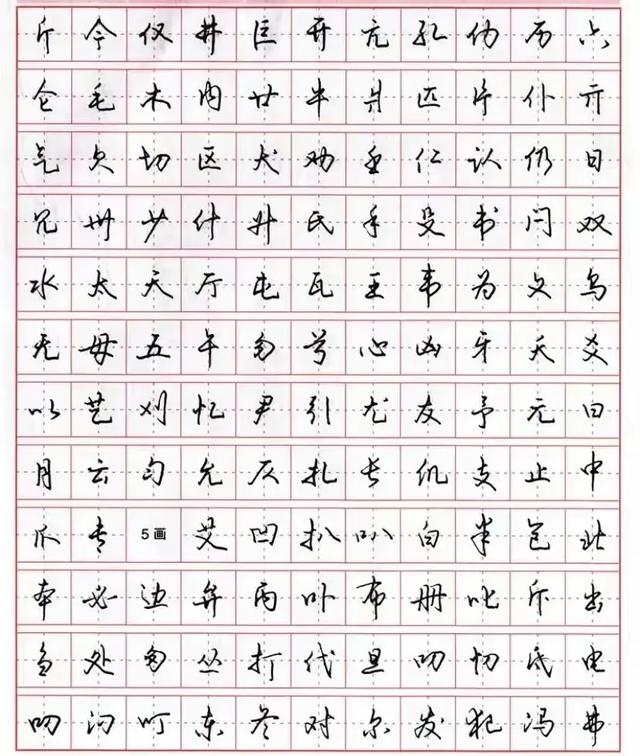 斤今仅井巨开亢孔历六
仑毛木内廿牛匹片仆亓
气欠切区犬劝壬仁认仍日
冗卅少什升氏手殳书闩双
水太天厅屯瓦王韦为文乌
无毋五午勿兮心凶牙夭爻
以艺刈忆尹引尤友予元曰
月云匀允仄扎长仉支止中
爪专 5画 艾凹扒叭白半包北
本必边弁丙卟布册叱斥出
刍处匆丛打代旦叨忉氐电
叼汈叮东冬对尔发犯冯弗